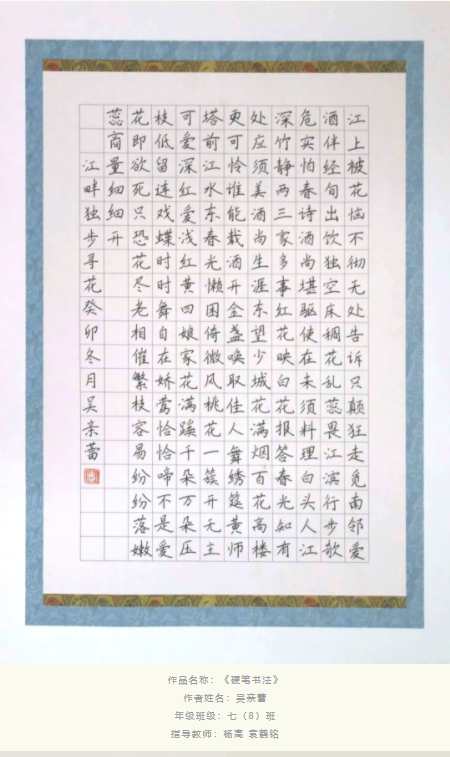 江上被花恼不彻无处告诉只颠狂走觅南邻爱
酒伴经旬出饮独空床稠花乱蕊畏江滨行步欹
危实怕春诗酒尚堪驱使在未须料理白头人江
深竹静两三家多事红花映白花报答春光知有
处应须美酒尚生涯东望少城花满烟百花高楼
更可怜谁能载酒开金盏唤取佳人舞绣筵黄师
塔前江水东春光懒困倚微风桃花一簇开无主
可爱深红爱浅红黄四娘家花满蹊千朵万朵压
枝低留连戏蝶时时舞自在娇莺恰恰啼不是爱
花即欲死只恐花尽老相催繁枝容易纷纷落嫩
蕊商量细细开
江畔独步寻花癸卯冬月吴亲蕾
作品名称：《硬笔书法》
作者姓名：吴亲蕾
年级班级：七（8）班
指导教师：杨高 袁鹤铭